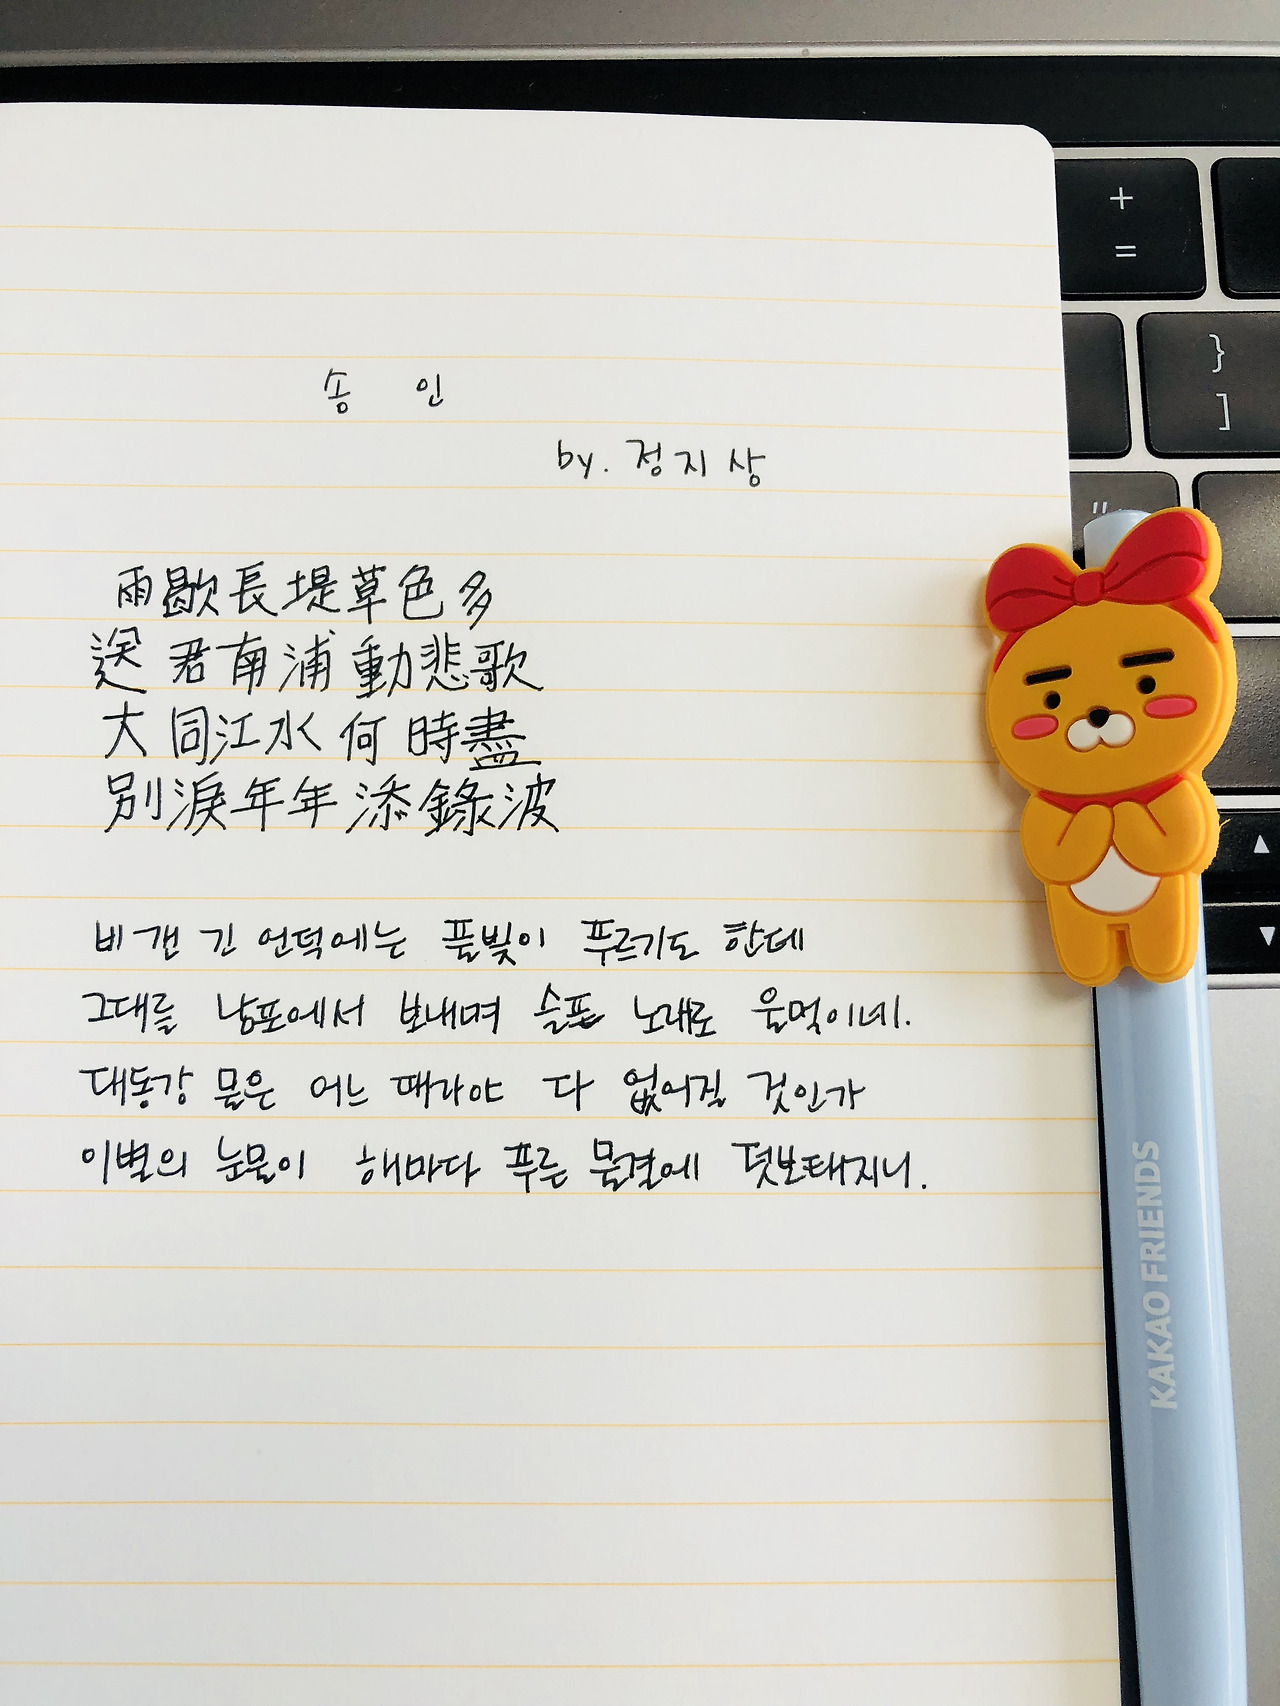 송 인
by. 정지상
雨歇長堤草色多
送君南浦動悲歌
大同江水何時盡
別淚年年添錄波
비 갠 긴 언덕에는 풀빛이 푸르기도 한데
그대를 남포에서 보내며 슬픈 노래로 울먹이네.
대동강 물은 어느 때라야 다 없어질 것인가
이별의 눈물이 해마다 푸른 물결에 덧보태지니.
+
=
}
]
"
KAKAO FRIENDS